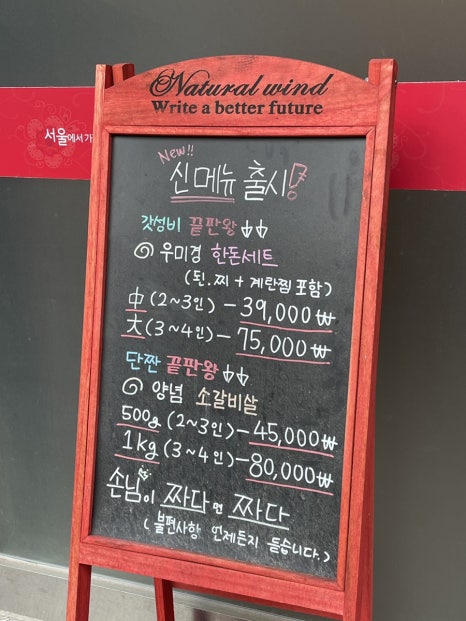 Natural wind
Write a better future
서울에서 가
New!!
신메뉴 출시!
갓성비 끝판왕
우미경 한돈세트
(된.찌 + 계란찜 포함)
中 (2~3인) - 39,000₩
大 (3~4인) - 75,000₩
단짠 끝판왕
양념 소갈비살
500g (2~3인) - 45,000₩
1kg (3~4인) - 80,000₩
손님이 짜다면 짜다
(불편사항 언제든지 듣습니다.)